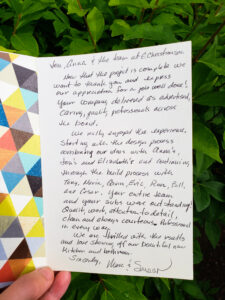 & the team at
Now that the project is complete we
want to thank you and express
our appreciation for a job well done!
Your company delivered as advertised,
Caring, quality, professionals across
the board.
We really enjoyed the experience,
Starting with the design process
our ideas with
and and continuing
through the build process with
Tony, Eric,
your entire team
and your subs were outstanding!
Quality work, attention to detail,
clean and always courteous, Professional
in every way.
We are thrilled with the results
and love showing off our beautiful new
Kitchen and bathroom.
Sincerely,